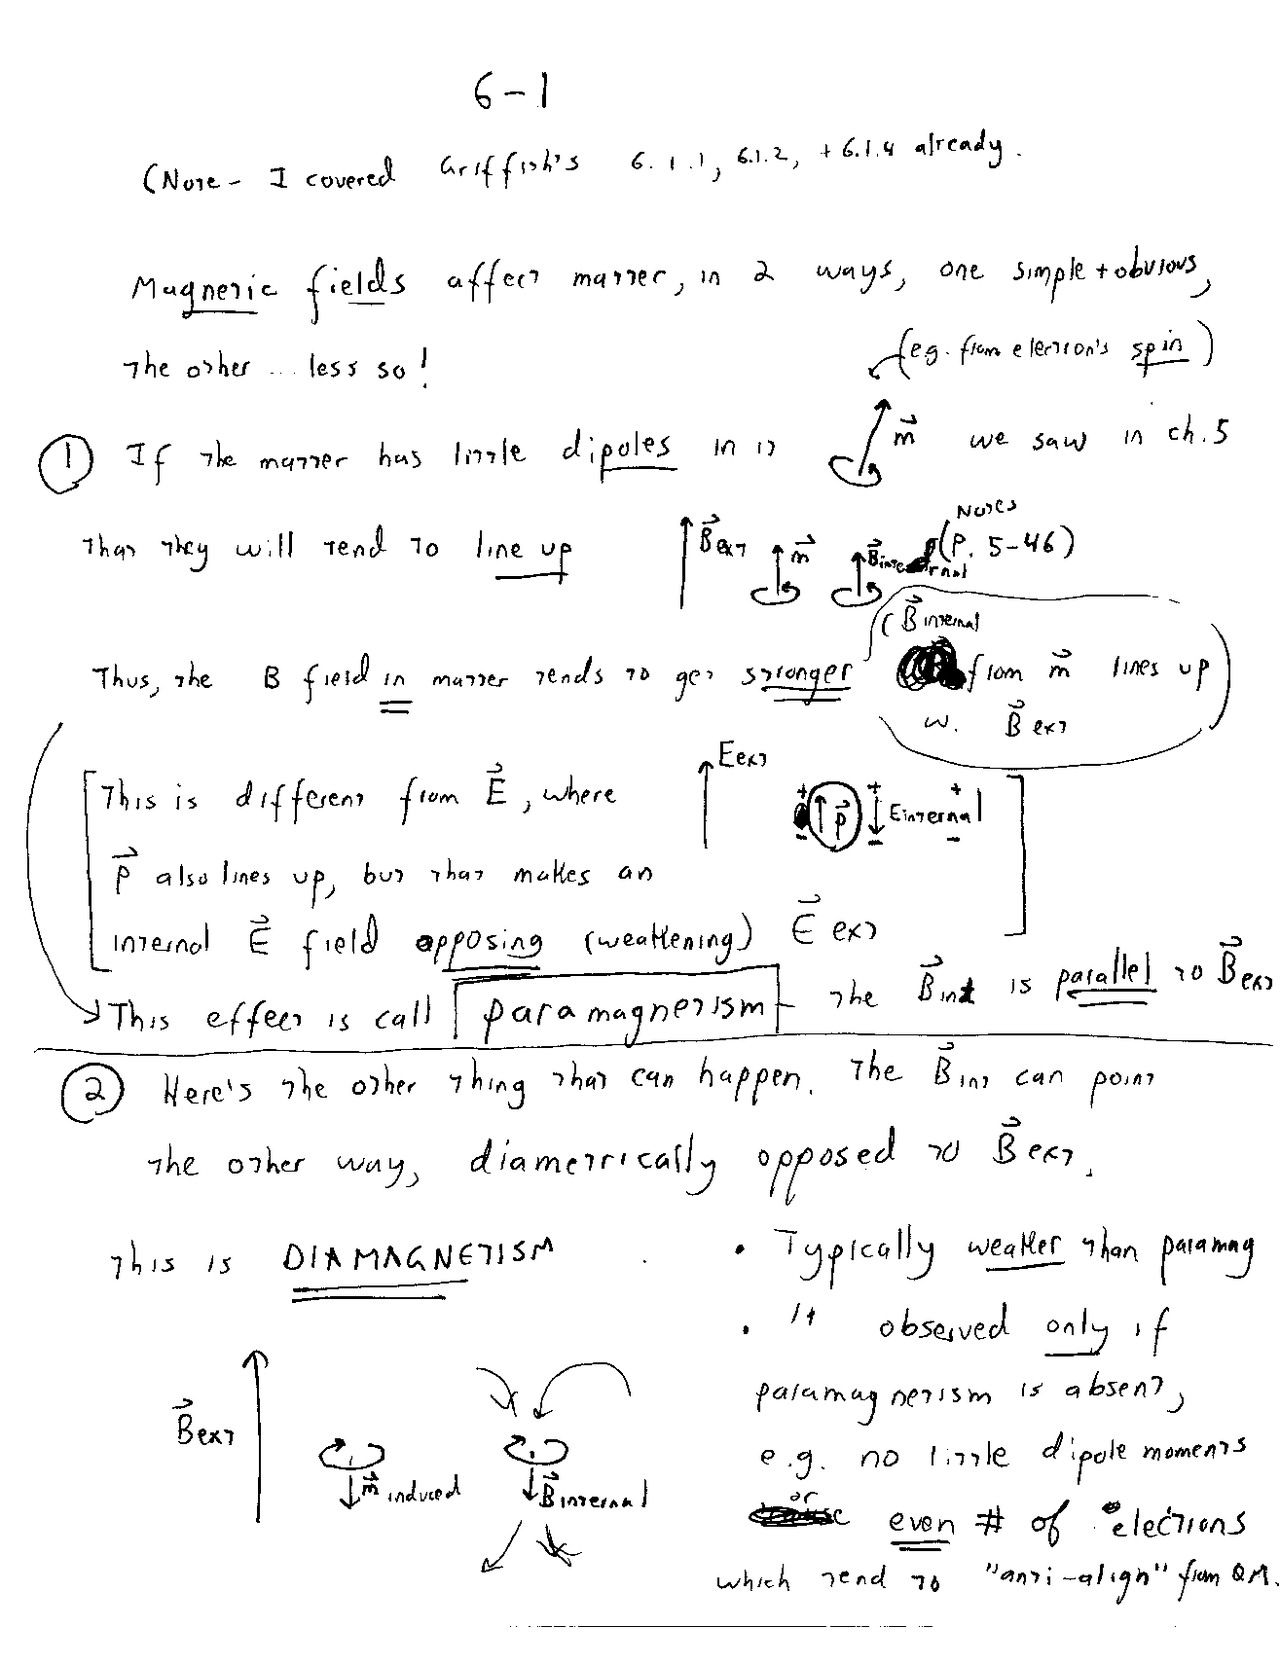 6-1
(Note - I covered Griffith's 6.1.1, 6.1.2, + 6.1.4 already.
Magnetic fields affect matter, in 2 ways, one simple + obvious,
the other ... less so!
(eg. from electron's spin)
① If the matter has little dipoles in it m⃗ we saw in ch.5
that they will tend to line up B⃗ext m⃗ B⃗internal (Notes P. 5-46)
Thus, the B field in matter tends to get stronger
(B⃗internal
from m⃗ lines up
w. B⃗ext)
[This is different from E⃗, where
Eext + + + p⃗ Einternal - - -
p⃗ also lines up, but that makes an
internal E⃗ field opposing (weakening) E⃗ext]
This effect is call paramagnetism - the B⃗int is parallel to B⃗ext
② Here's the other thing that can happen. The B⃗int can point
the other way, diametrically opposed to B⃗ext.
This is DIAMAGNETISM
• Typically weaker than paramag
• It observed only if
paramagnetism is absent,
e.g. no little dipole moments
or even # of electrons
which tend to "anti-align" from QM.
B⃗ext
m⃗ induced
B⃗internal